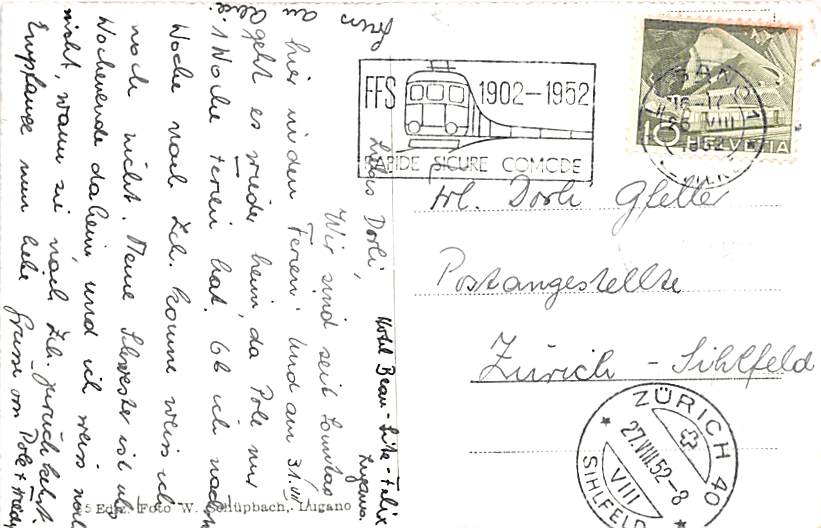 FFS 1902-1952
RAPIDE SICURE COMODE
LUGANO 1
16-17
26 VIII
1952
10 HELVETIA
Frl. Dorli Gfeller
Postangestellte
Zürich - Sihlfeld
ZÜRICH 40
27.VIII.52-8
VIII
SIHLFELD
Hotel Beau-Site-Felix
Lugano.
Liebes Dorli,
Wir sind seit Sonntag
hier in den Ferien. Und am 31.VIII
geht es wieder heim, da Pole nur
1 Woche Ferien hat. Ob ich nächste
Woche nach Zch. komme weiss ich
noch nicht. Meine Schwester ist übers
Wochenende daheim, und ich weiss noch
nicht, wann sie nach Zch. zurückkehrt.
Empfange nun liebe Grüsse von Pole +
Gruss an
Edit. Foto W. Schüpbach, Lugano